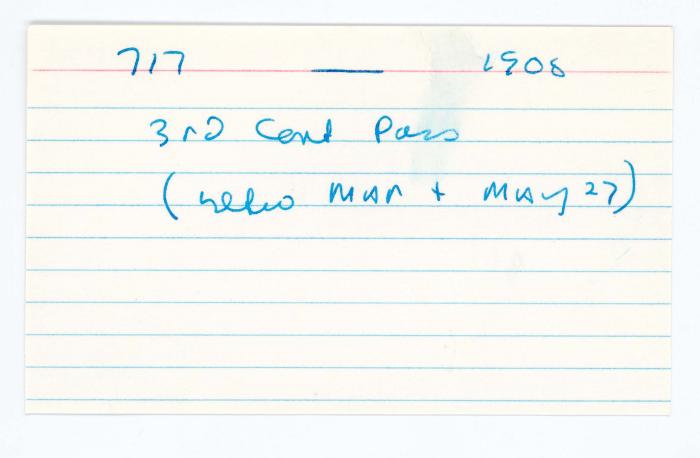 717 — 1908
3rd Cent Pass
(retro MAR + MAY 27)